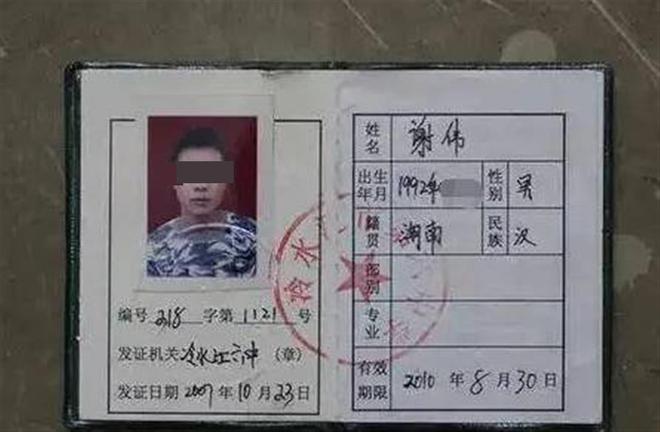 编号 218 字第 1121 号
发证机关 冷水江六中 (章)
发证日期 2007 年 10 月 23 日
姓名 谢伟
出生年月 1992年 性别 男
籍贯 湖南 民族 汉
部别
专业
有效期限 2010 年 8 月 30 日
冷水